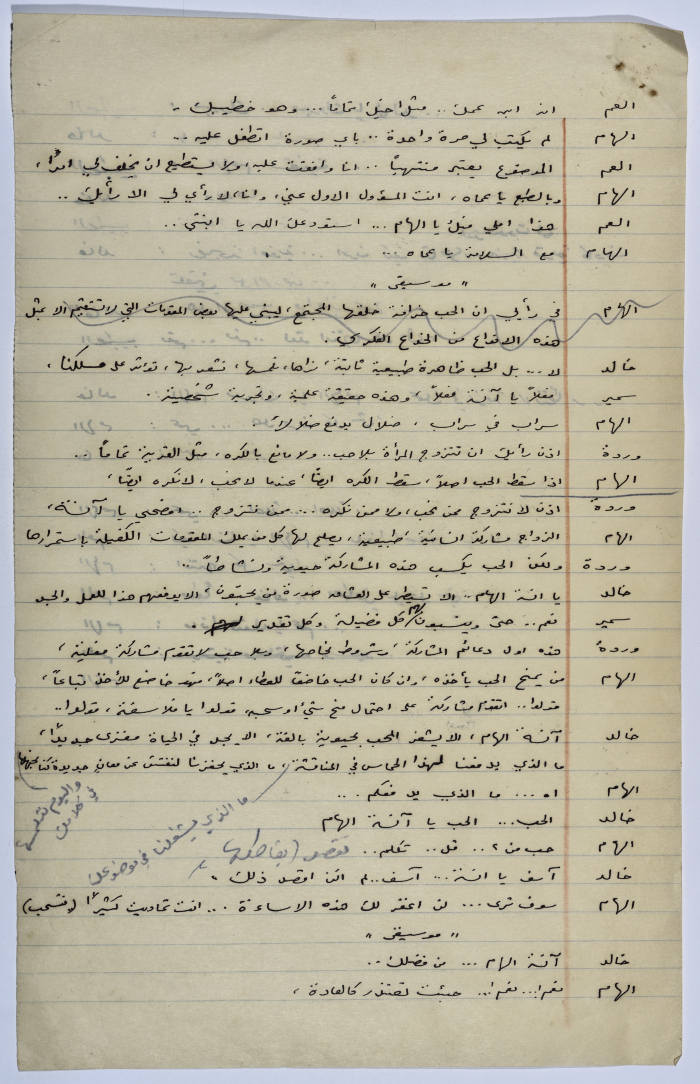 العم ان ابن عمك .. مثل اختك تماماً ... وهو خطيبك .
الهام لم يكتب لي مرة واحدة .. باي صورة اتطفل عليه ..
العم الموضوع يعتبر منتهياً .. انا وافقت عليه، ولا يستطيع ان يخلف لي امراً،
الهام وبالطبع يا عماه، انت المسؤول الاول عني، وانا لا رأي لي الا رأيك ..
العم هذا املي فيك يا الهام ... استودعك الله يا ابنتي ..
الهام مع السلامة يا عماه ...
" موسيقى "
الهام في رأيي ان الحب خرافة خلقها المجتمع، ليبني عليها بعض المقومات التي لا تستقيم الا بمثل
هذه الانواع من الخداع الفكري .
خالد لا .. بل الحب ظاهرة طبيعية ثابتة، نراها، نلمسها، نشعر بها، تؤثر على مسلكنا،
سمير فعلاً يا آنسة فعلاً، وهذه حقيقة علمية، وتجربة شخصية .
الهام سراب في سراب، ضلال يدفع ضلالاً .
وردة اذن رأيك ان تتزوج المرأة بلا حب .. ولا مانع بالكره، مثل الغربية تماماً ..
الهام اذا سقط الحب اصلاً، سقط الكره ايضاً، عندما لا نحب، لا نكره ايضاً،
وردة اذن لا نتزوج ممن نحب، ولا ممن نكره ... ممن نتزوج .. افصحي يا آنسة،
الهام الزواج مشاركة انسانية طبيعية، يصلح لها كل من يملك المقومات الكفيلة باستمرارها
وردة ولكن الحب يكسب هذه المشاركة حيوية ونشاطاً ..
خالد يا آنسة الهام .. الا تسيطر على العشاق صورة من يحبون، الا يدفعهم هذا للعمل والجد
سمير نعم .. حتى وينسبون لهم كل فضيلة وكل تقدير .
وردة هذه اول دعائم المشاركة، وشروط نجاحها، وبلا حب لا تقوم مشاركة فعلية،
الهام من يمنح الحب يأخذه، وان كان الحب خاضعاً للعطاء اصلاً، فهو خاضع للأخذ تباعاً،
قولوا .. اتقوم مشاركة على احتمال منح شيء او سحبه، قولوا يا فلاسفة، قولوا ..
خالد آنسة الهام، الا يشعر المحب بحيوية بالغة، الا يجد في الحياة مغزى جديداً،
ما الذي يدفعنا لهذا الحماس في المناقشة، ما الذي يحفزنا لنفتش عن معانٍ جديدة كنا نجهلها
واليوم نتلمسها
في كلامك
ما الذي يشغلنا في موضوعك
الهام اه ... ما الذي يدفعكم ...
خالد الحب ... الحب يا آنسة الهام
الهام حب من ؟ .. قل .. تكلم .. تقصد
خالد آسف يا آنسة ... آسف .. لم اكن اقصد ذلك .
الهام سوف ترى ... لن اغفر لك هذه الاساءة ... انت تماديت كثيراً (وتنسحب)
" موسيقى "
خالد آنسة الهام ... من فضلك ..
الهام نعم ! .. نعم ! .. جئت تعتذر كالعادة ،